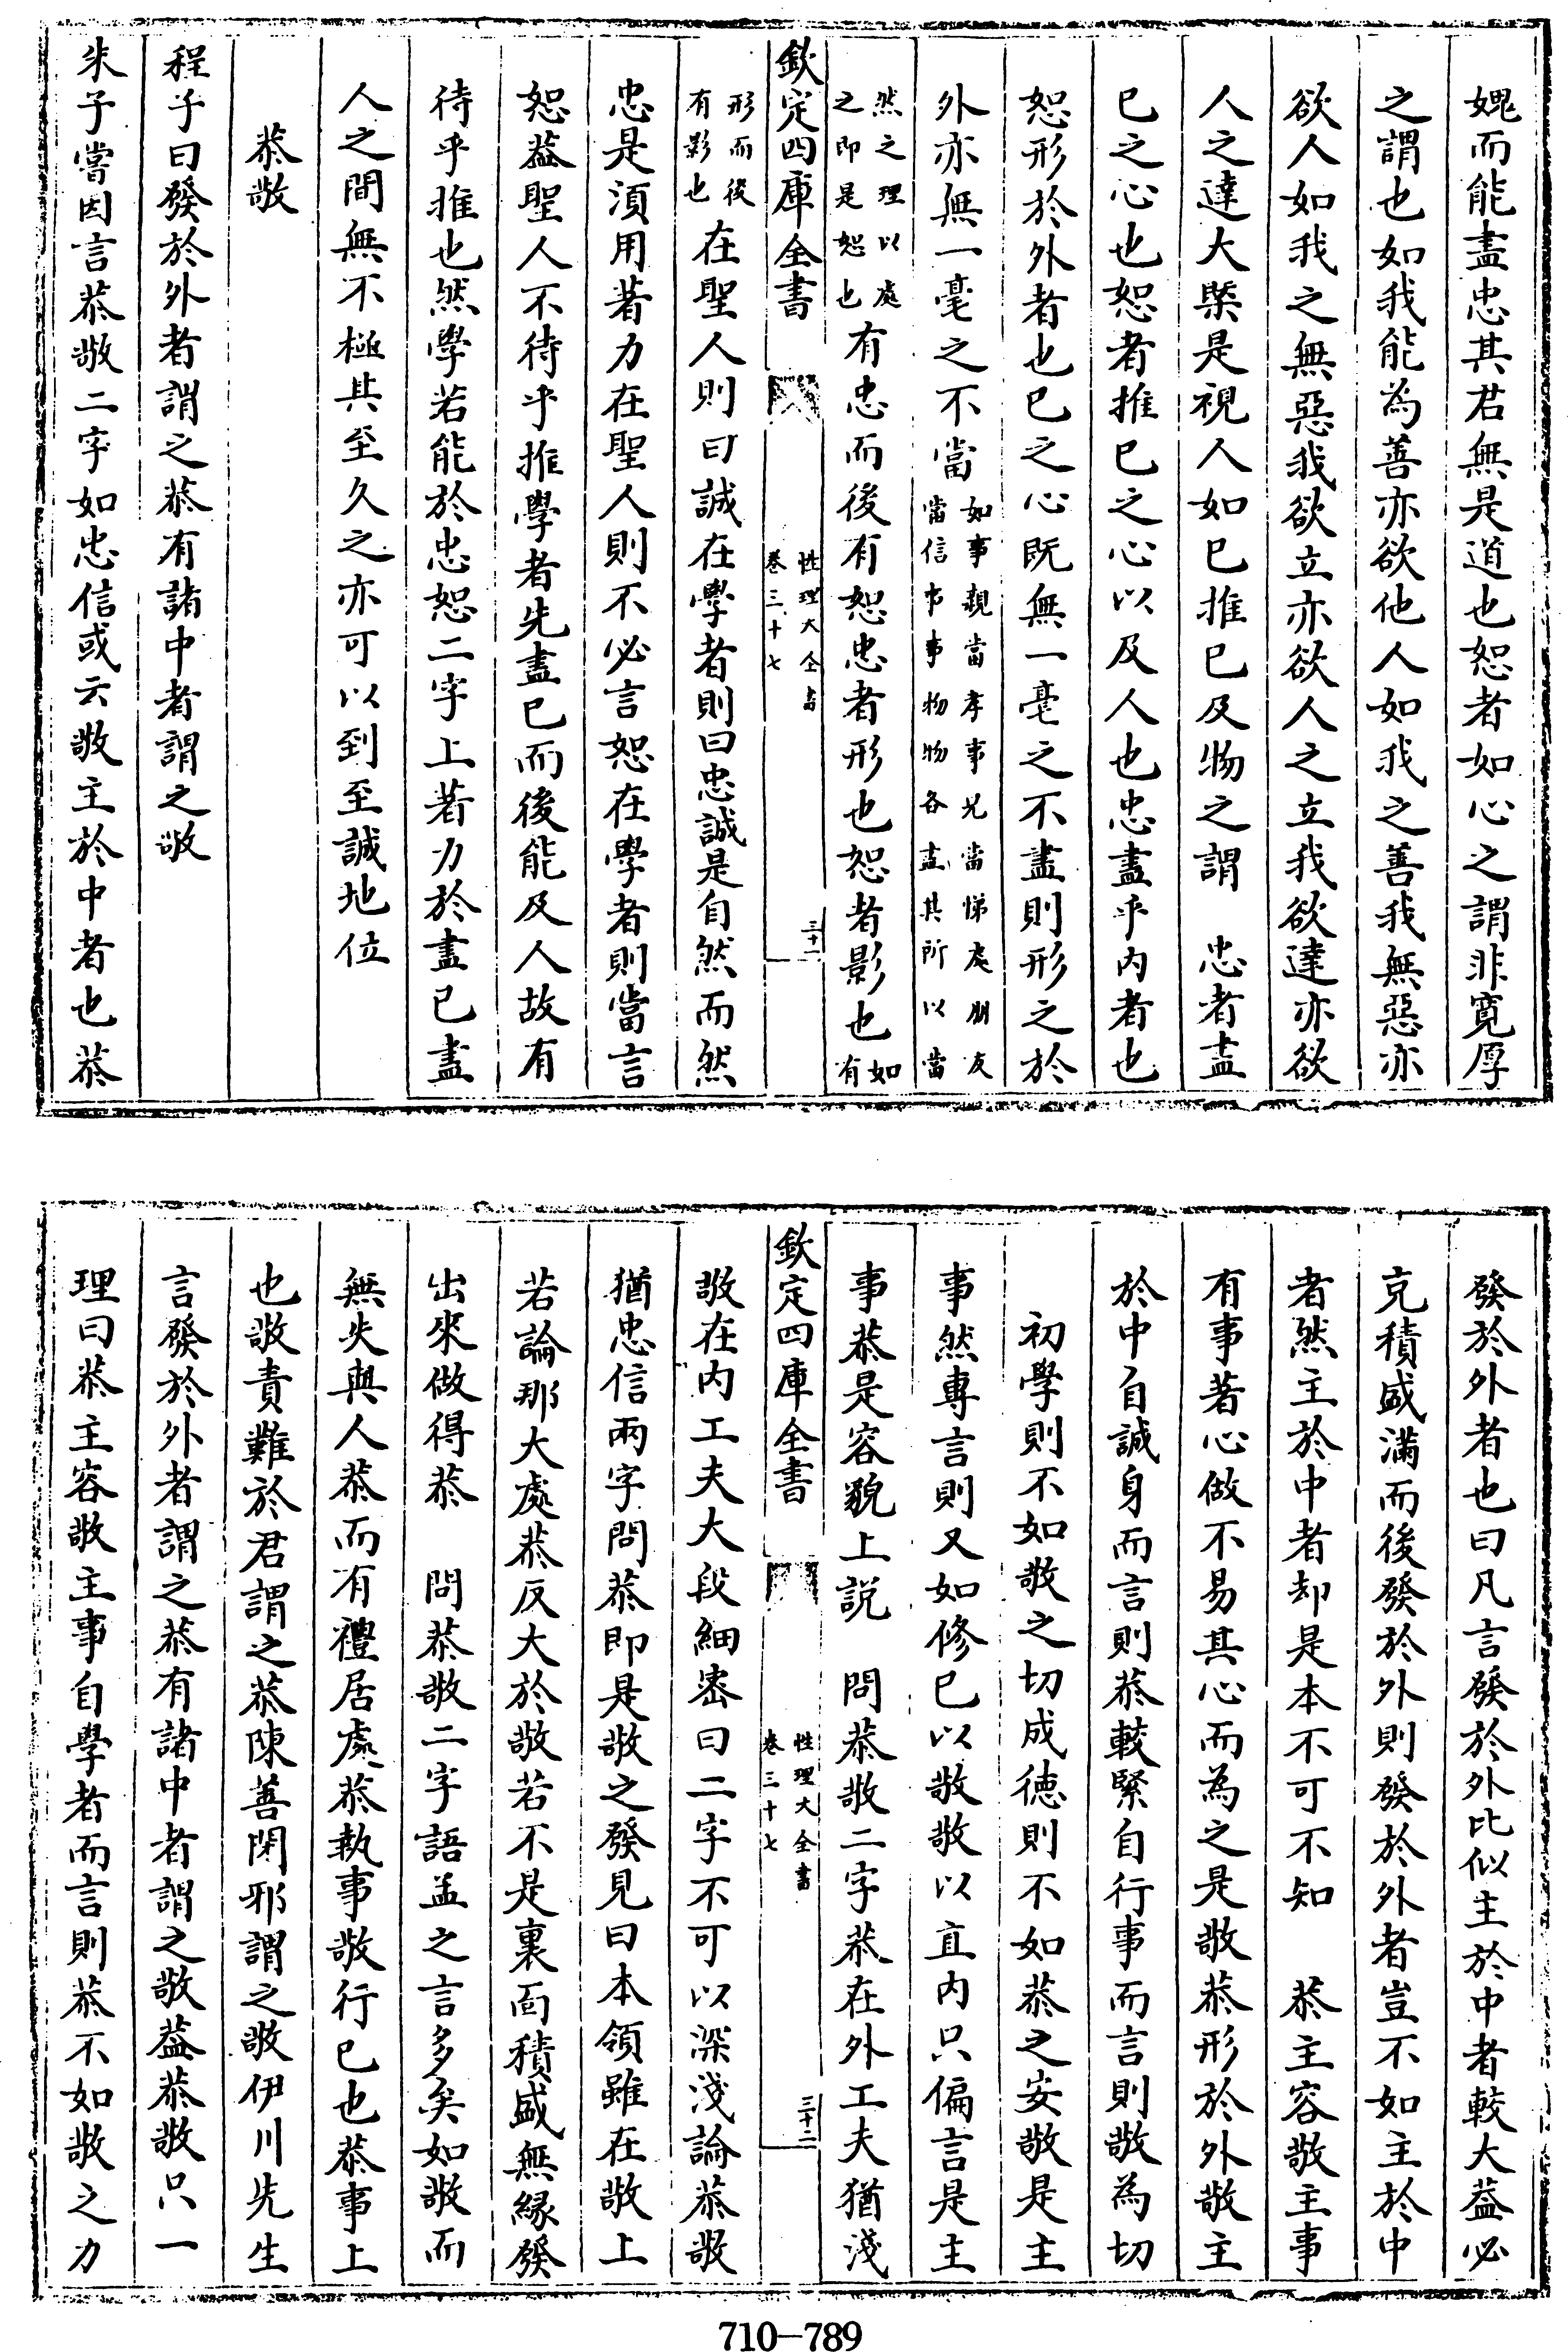 媿而能盡忠其君無是道也恕者如心之謂非寛厚
之謂也如我能為善亦欲他人如我之善我無惡亦
欲人如我之無惡我欲立亦欲人之立我欲達亦欲
人之達大槩是視人如己推己及物之謂　忠者盡
己之心也恕者推己之心以及人也忠盡乎内者也
恕形於外者也己之心既無一毫之不盡則形之於
外亦無一毫之不當如事親當孝事兄當悌處朋友當信事事物物各盡其所以當
然之理以處之即是恕也有忠而後有恕忠者形也恕者影也如有
欽定四庫全書
性理大全書
卷三十七
三十一
形而後有影也在聖人則曰誠在學者則曰忠誠是自然而然
忠是須用著力在聖人則不必言恕在學者則當言
恕葢聖人不待乎推學者先盡己而後能及人故有
待乎推也然學若能於忠恕二字上著力於盡己盡
人之間無不極其至久之亦可以到至誠地位
恭敬
程子曰發於外者謂之恭有諸中者謂之敬
朱子嘗因言恭敬二字如忠信或云敬主於中者也恭
發於外者也曰凡言發於外比似主於中者較大葢必
克積盛滿而後發於外則發於外者豈不如主於中
者然主於中者却是本不可不知　恭主容敬主事
有事著心做不易其心而為之是敬恭形於外敬主
於中自誠身而言則恭較緊自行事而言則敬為切
初學則不如敬之切成徳則不如恭之安敬是主
事然專言則又如修己以敬敬以直内只偏言是主
事恭是容貌上説　問恭敬二字恭在外工夫猶淺
欽定四庫全書
性理大全書
卷三十七
三十二
敬在内工夫大段細宻曰二字不可以深淺論恭敬
猶忠信兩字問恭即是敬之發見曰本領雖在敬上
若論那大處恭反大於敬若不是裏面積盛無縁發
出來做得恭　問恭敬二字語孟之言多矣如敬而
無失與人恭而有禮居處恭執事敬行己也恭事上
也敬責難於君謂之恭陳善閉邪謂之敬伊川先生
言發於外者謂之恭有諸中者謂之敬葢恭敬只一
理曰恭主容敬主事自學者而言則恭不如敬之力
710-789